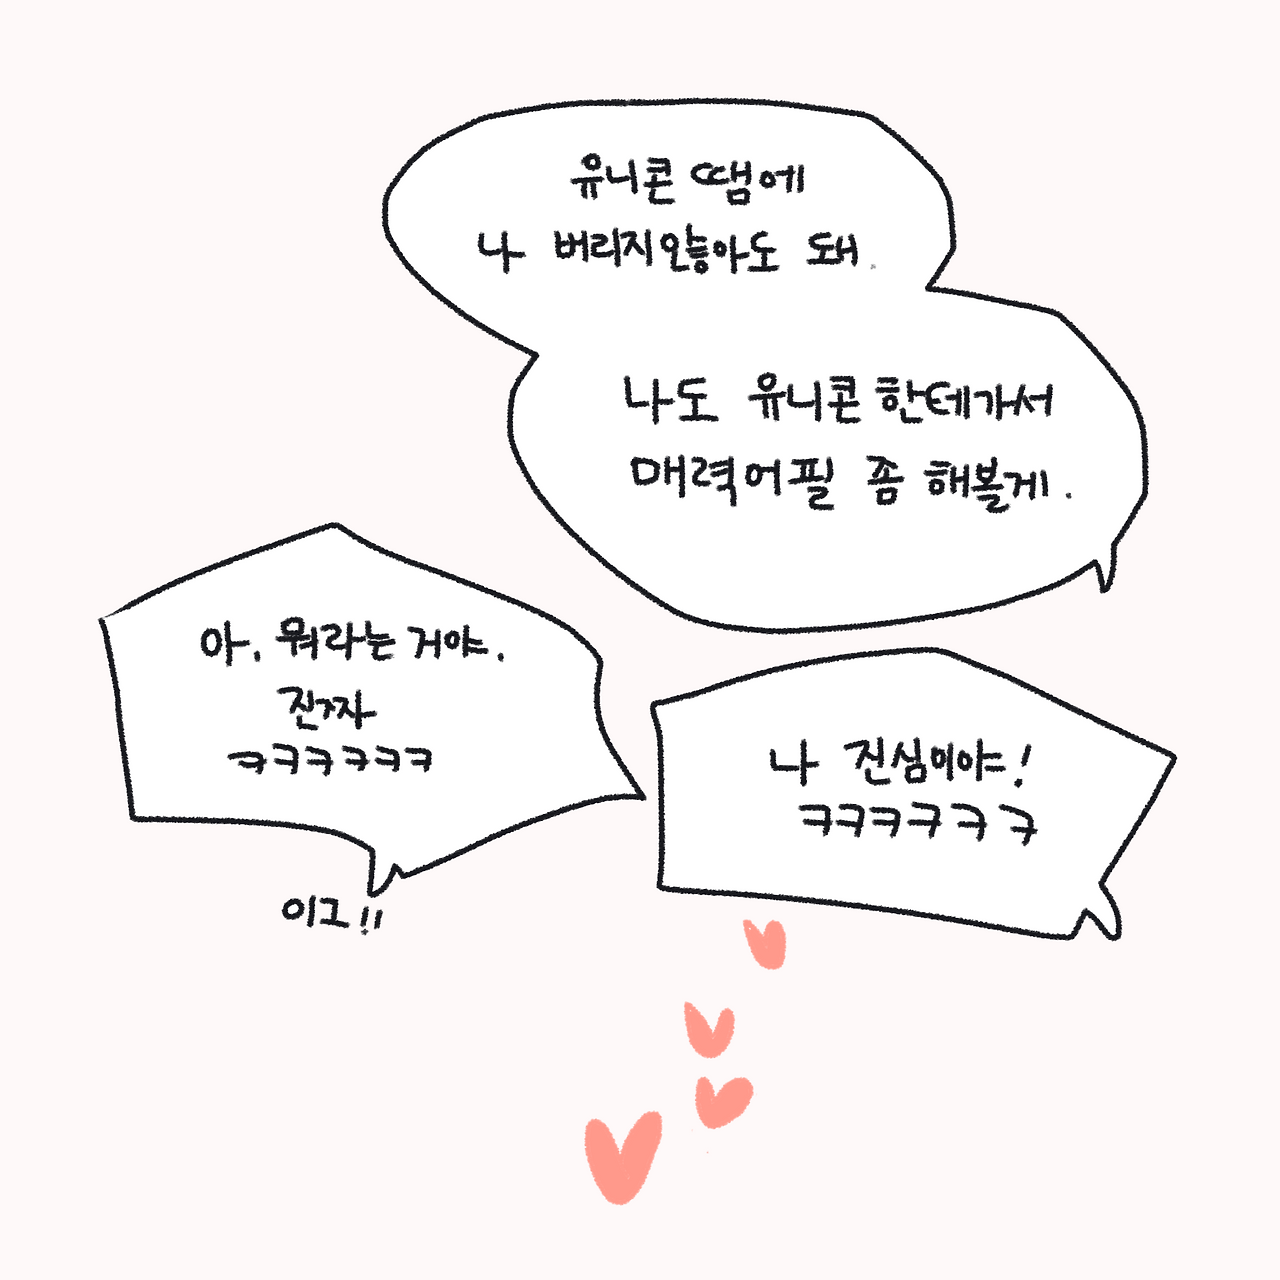 유니콘 땜에
나 버리지않아도 돼.
나도 유니콘한테가서
매력어필 좀 해볼게.
아, 뭐라는 거야.
진짜
ㅋㅋㅋㅋㅋㅋ
이그!!
나 진심이야!
ㅋㅋㅋㅋㅋㅋ